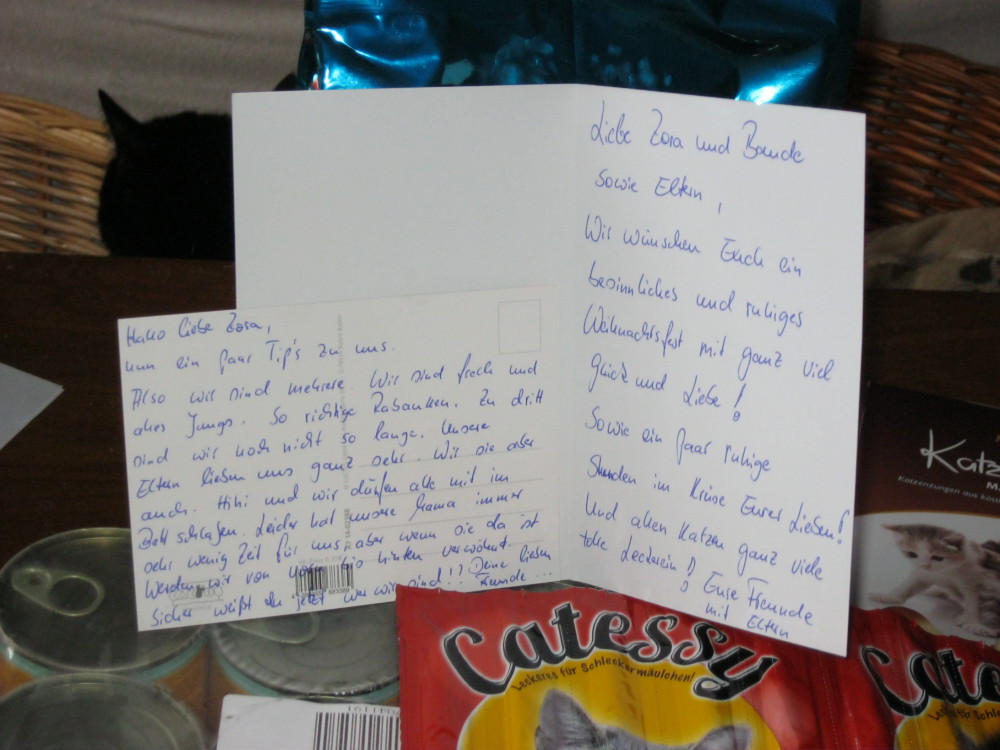 Liebe Zora und Bande
sowie Eltern,
Wir wünschen Euch ein
besinnliches und ruhiges
Weihnachtsfest mit ganz viel
Glück und Liebe!
Sowie ein paar ruhige
Stunden im Kreise Eurer Lieben!
Und allen Katzen ganz viele
tolle Leckerein!! Eure Freunde
mit Eltern
Hallo liebe Zora,
nun ein paar Tip's zu uns.
Also wir sind mehrere. Wir sind frech und
alles Jungs. So richtige Rabauken. Zu dritt
sind wir noch nicht so lange. Unsere
Eltern lieben uns ganz sehr. Wir sie aber
auch. Hihi und wir dürfen alle mit im
Bett schlafen. Leider hat unsere Mama immer
sehr wenig Zeit für uns, aber wenn sie da ist
werden wir von vorn bis hinten verwöhnt.
Sicher weißt du jetzt wer wir sind!!? Deine lieben
Freunde...
Catessy
Leckeres für Schleckermäulchen!
Katz
Katzenzungen aus
Cate
Leckeres für Schle